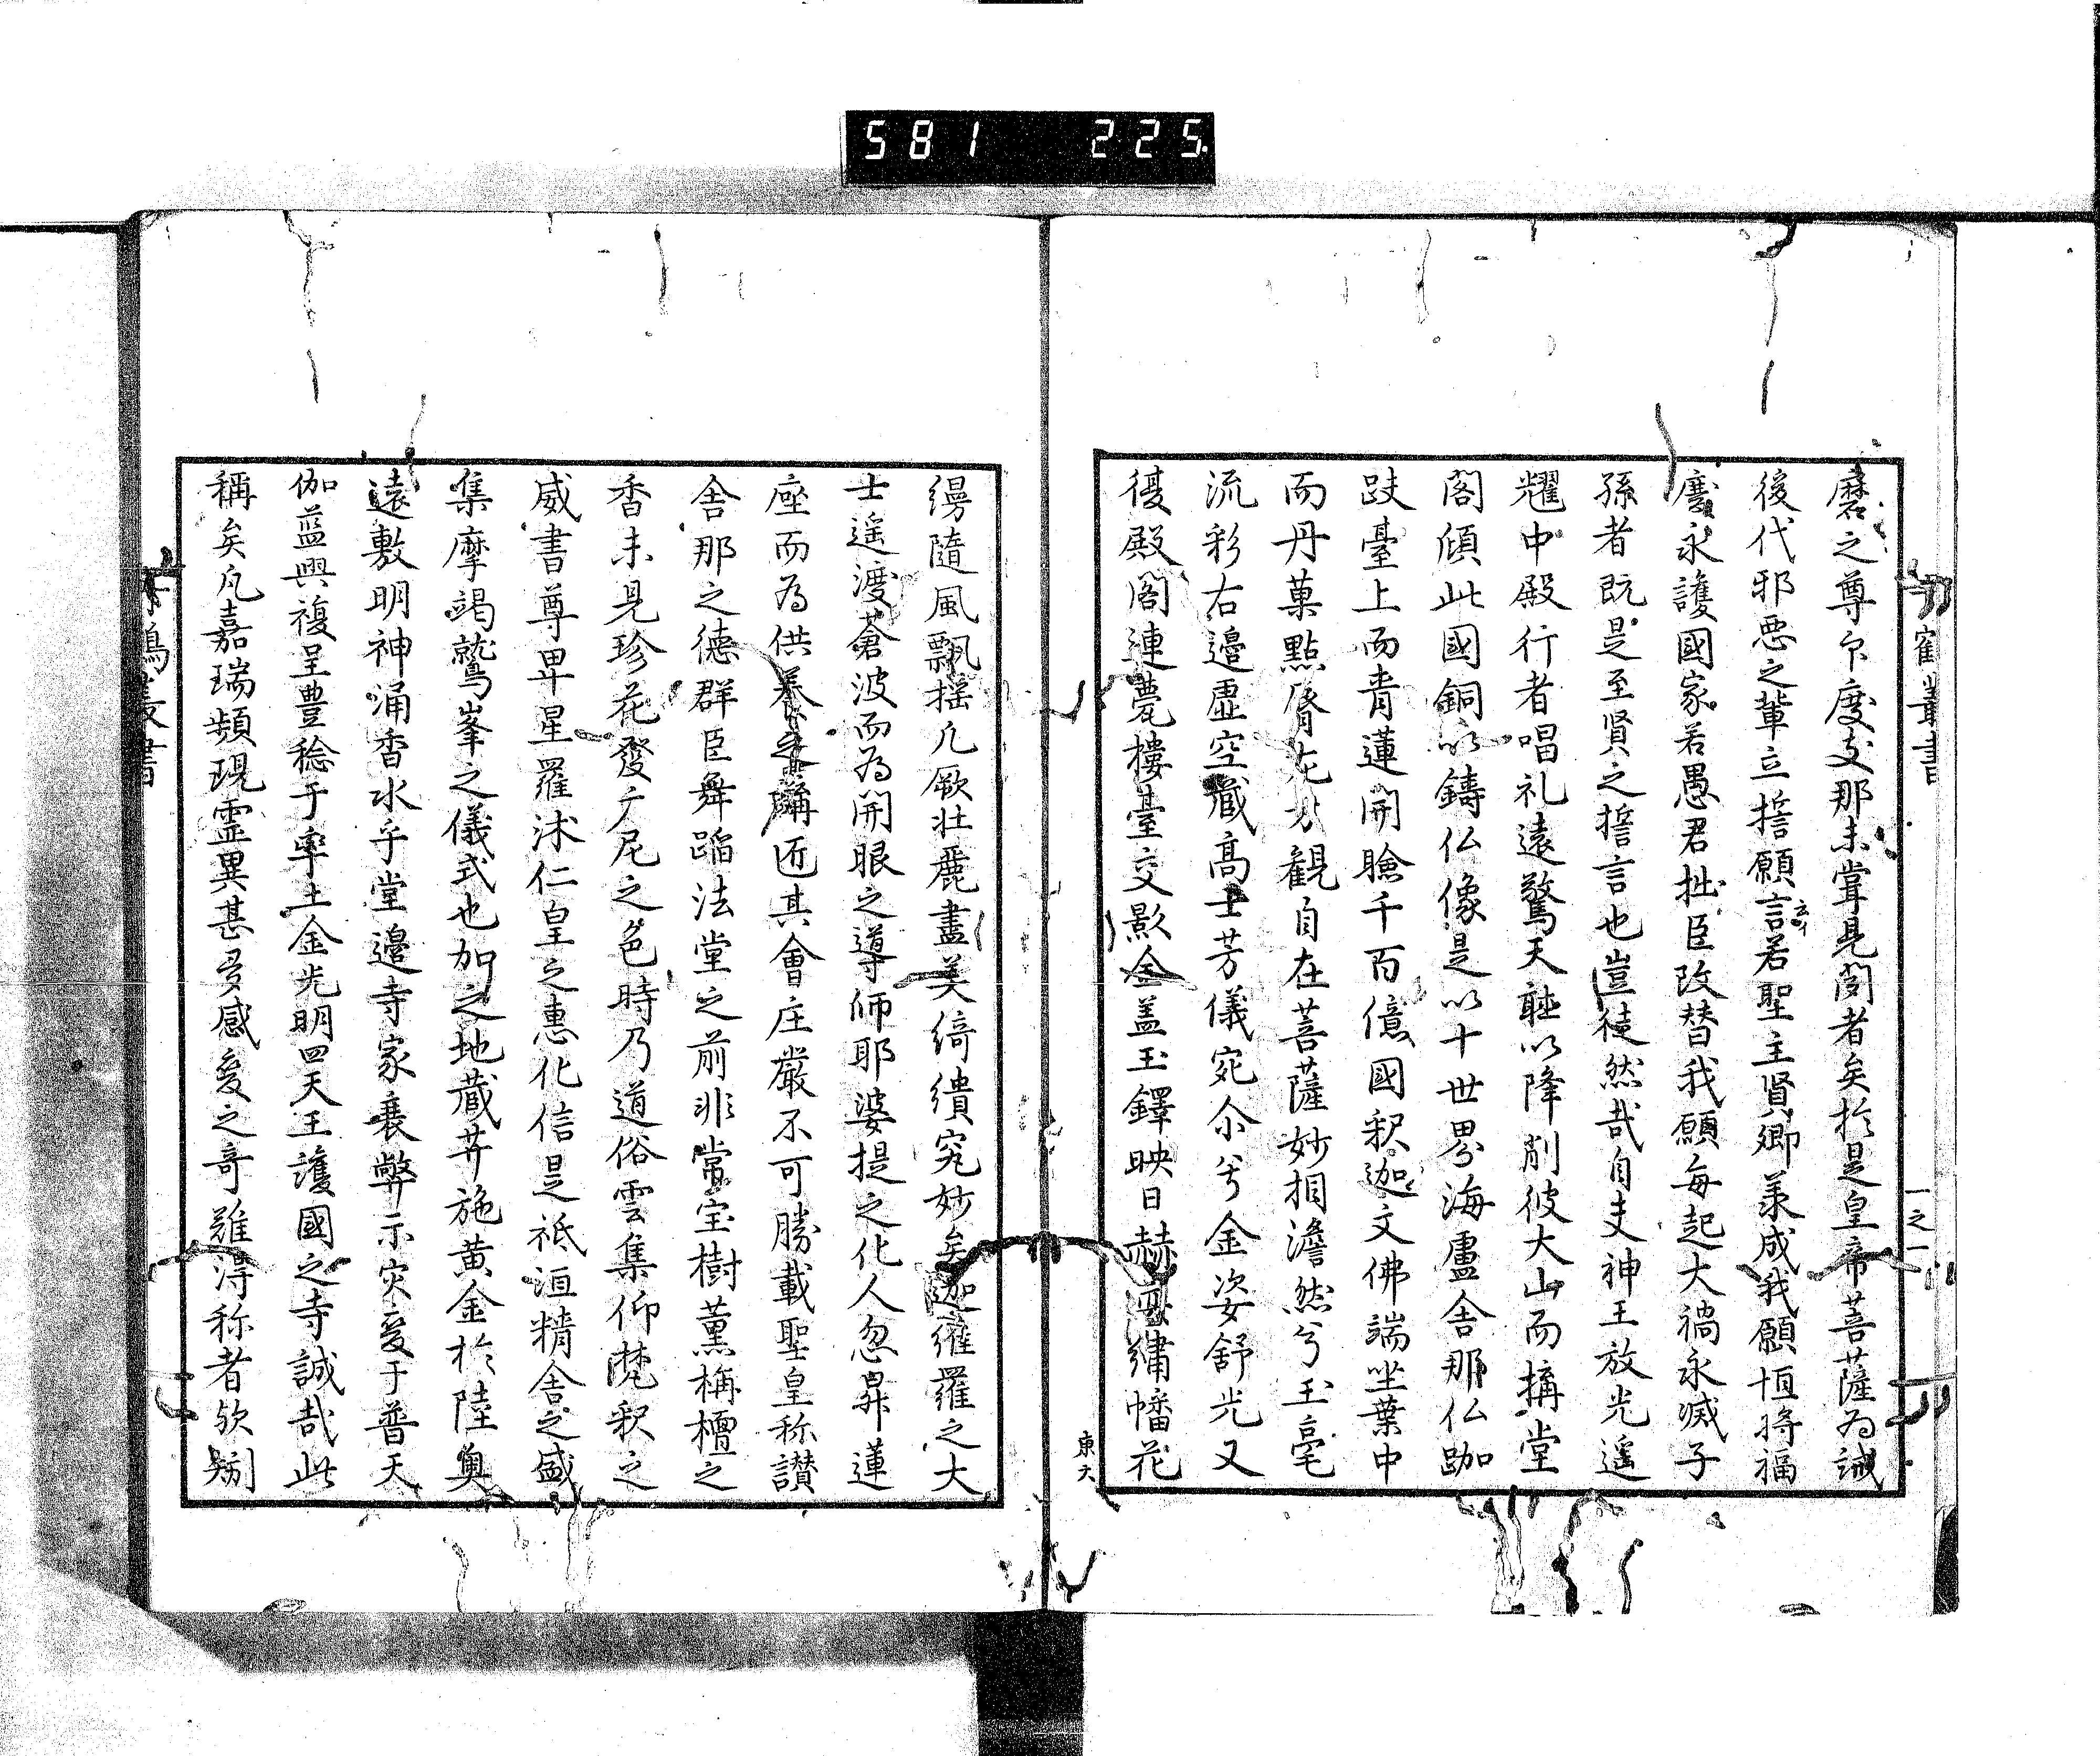 581 225
磨之尊印度支那未甞見聞者矣於是皇帝菩薩為誡
後代邪惡之輩立誓願言若聖主賢卿義成我願恒将福
慶永護國家若愚君拙臣改替我願每起大禍永滅子
孫者既是至賢之誓言也豈徒然哉自支神王放光遥
耀中殿行者唱礼遠驚天聴以降削彼大山而搆堂
閣傾此國銅以鑄仏像是以十世界海盧舎那仏跏
趺臺上而青蓮開瞼千百億國釈迦文佛端坐葉中
而丹菓點脣左方観自在菩薩妙相澹然兮玉毫
流彩右邉虚空蔵高士芳儀宛尒兮金姿舒光又
復殿閣連甍樓臺交影金盖玉鐸映日赫繍幡花
縵随風飄揺凡厥壮麗盡美綺繢究妙矣迦羅羅之大
士遥渡蒼波而為開眼之導師耶婆提之化人忽昇蓮
座而為供養之其會庄嚴不可勝載聖皇称讃
舎那之德群臣舞蹈法堂之前非常宝樹薫栴檀之
香未見珍花發之色時乃道俗雲集仰梵釈之
威書尊卑星羅沐仁皇之惠化信是祇洹精舎之盛
集摩竭鷲峯之儀式也加之地蔵菩施黄金於陸奥
遠敷明神涌香水乎堂邉寺家衰弊示灾変于普天
伽藍興複呈豊稔于率土金光明四天王護國之寺誠哉此
稱矣凡嘉瑞頻現霊異甚多感変之奇難得称者欤
鶴叢書
一之一
東大